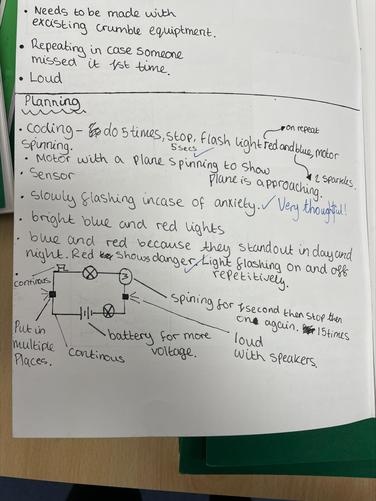 • Needs to be made with
excisting crumble equiptment.
• Repeating in case someone
missed it 1st time.
• Loud
Planning
on repeat
• coding - do 5 times, stop, flash light red and blue, motor
spinning. 5secs
• Motor with a plane spinning to show 2 sparkles.
• Sensor plane is approaching.
• slowly flashing incase of anxiety. ✓ Very thoughtful!
• bright blue and red lights
• blue and red because they standout in day and
night. Red shows danger. Light flashing on and off
repetitively.
continous
spining for 1 second then stop then
on again. 15 times
Put in
multiple
Places.
continous
battery for more
voltage.
loud
with speakers.